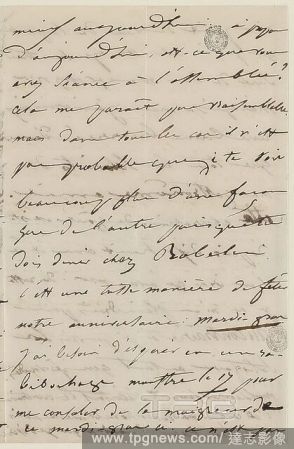 mieux aujourd'hui, à propos
d'aujourd'hui, est-ce que vous
avez séance à l'assemblée?
Cela me paraît peu vraisemblable
mais dans tous les cas il n'est
pas probable que je te voie
beaucoup plus d'une façon
que de l'autre puisque tu
dois dîner chez
C'est une triste manière de fêter
notre anniversaire mardi gras
J'ai besoin d'espérer en un
mettre le 17 pour
me consoler de la maigreur de
ce mardi gras ci, ce n'est pas
www.tpgnews.com/達志影像